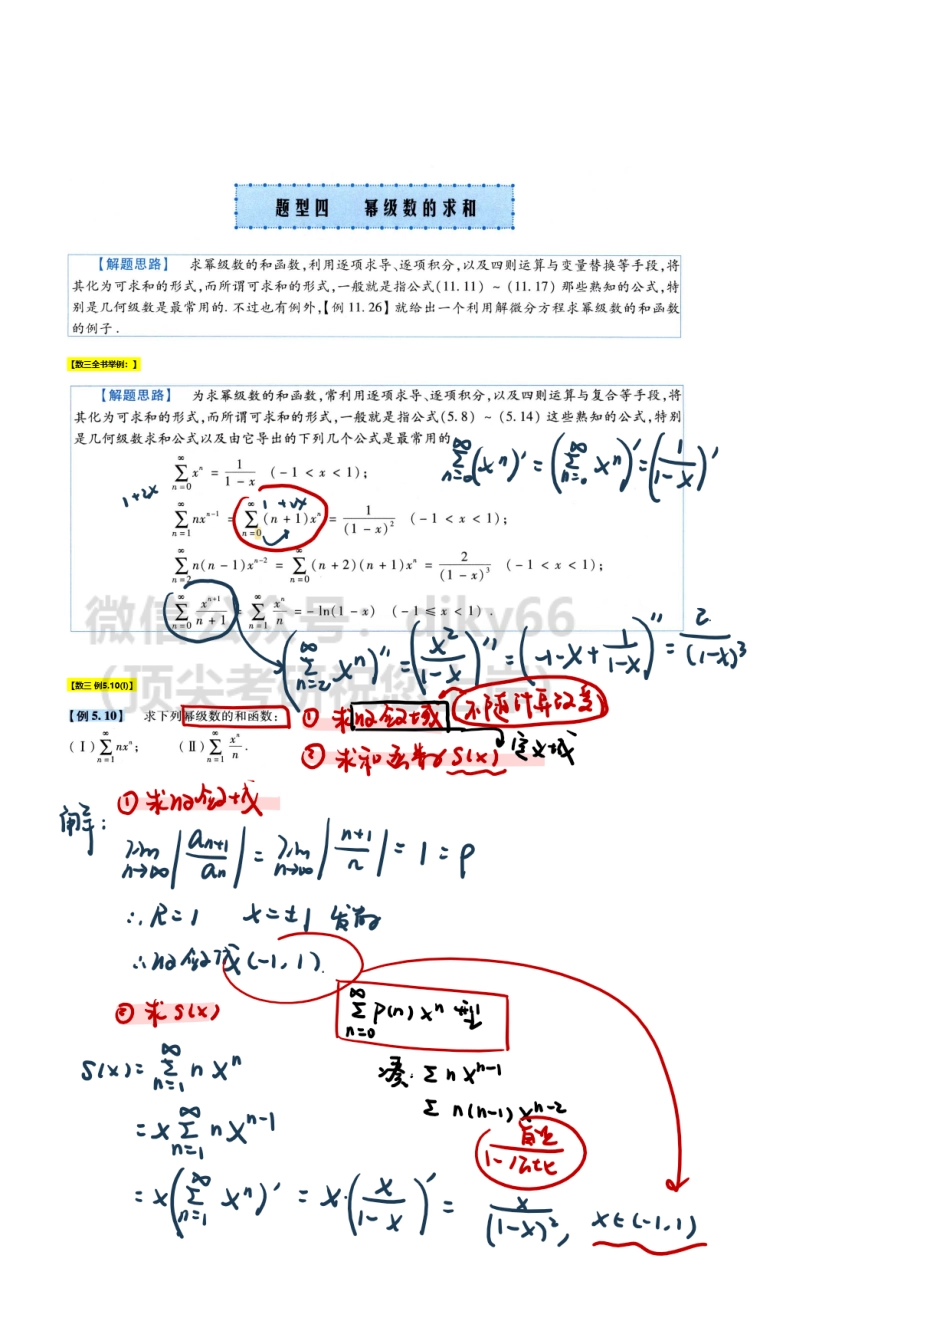 题型四 幂级数的求和
【解题思路】 求幂级数的和函数,利用逐项求导、逐项积分,以及四则运算与变量替换等手段,将
其化为可求和的形式,而所谓可求和的形式,一般就是指公式(11.11) ~ (11.17) 那些熟知的公式,特
别是几何级数是最常用的. 不过也有例外,【例 11.26】就给出一个利用解微分方程求幂级数的和函数
的例子.
【数三全书举例: 】
【解题思路】 为求幂级数的和函数,常利用逐项求导、逐项积分,以及四则运算与复合等手段,将
其化为可求和的形式,而所谓可求和的形式,一般就是指公式(5.8) ~ (5.14) 这些熟知的公式,特别
是几何级数求和公式以及由它导出的下列几个公式是最常用的
∑_{n=0}^{∞} (xⁿ)′ = (∑_{n=0}^{∞} xⁿ)′ = (1/(1-x))′
∑_{n=0}^{∞} xⁿ = 1/(1-x) (-1 < x < 1);
1+2x
1 + 2x
∑_{n=1}^{∞} nx^{n-1} = ∑_{n=0}^{∞} (n+1)xⁿ = 1/(1-x)² (-1 < x < 1);
∑_{n=2}^{∞} n(n-1)x^{n-2} = ∑_{n=0}^{∞} (n+2)(n+1)xⁿ = 2/(1-x)³ (-1 < x < 1);
∑_{n=0}^{∞} x^{n+1}/(n+1) = ∑_{n=1}^{∞} xⁿ/n = -ln(1-x) (-1 ≤ x < 1).
微信公众号: djky66
(顶尖考研祝您上岸)
(∑_{n=2}^{∞} xⁿ)″ = (x²/(1-x))″ = (-1-x+1/(1-x))″ = 2/(1-x)³
【数三 例5.10(I)】
【例 5.10】 求下列幂级数的和函数:
① 求收敛域 (不随计算改变)
(Ⅰ) ∑_{n=1}^{∞} nxⁿ; (Ⅱ) ∑_{n=1}^{∞} xⁿ/n.
② 求和函数 S(x) 定义域
解:
① 求收敛域
lim_{n→∞} |a_{n+1}/a_n| = lim_{n→∞} |(n+1)/n| = 1 = ρ
∴ R=1 x=±1 发散
∴ 收敛域 (-1,1).
② 求 S(x)
∑_{n=0}^{∞} P(n) xⁿ
S(x) = ∑_{n=1}^{∞} n xⁿ
凑: ∑ n x^{n-1}
∑ n(n-1) x^{n-2}
= x ∑_{n=1}^{∞} n x^{n-1}
首项/(1-公比)
= x (∑_{n=1}^{∞} xⁿ)′ = x·(x/(1-x))′ = x/(1-x)², x∈(-1,1)